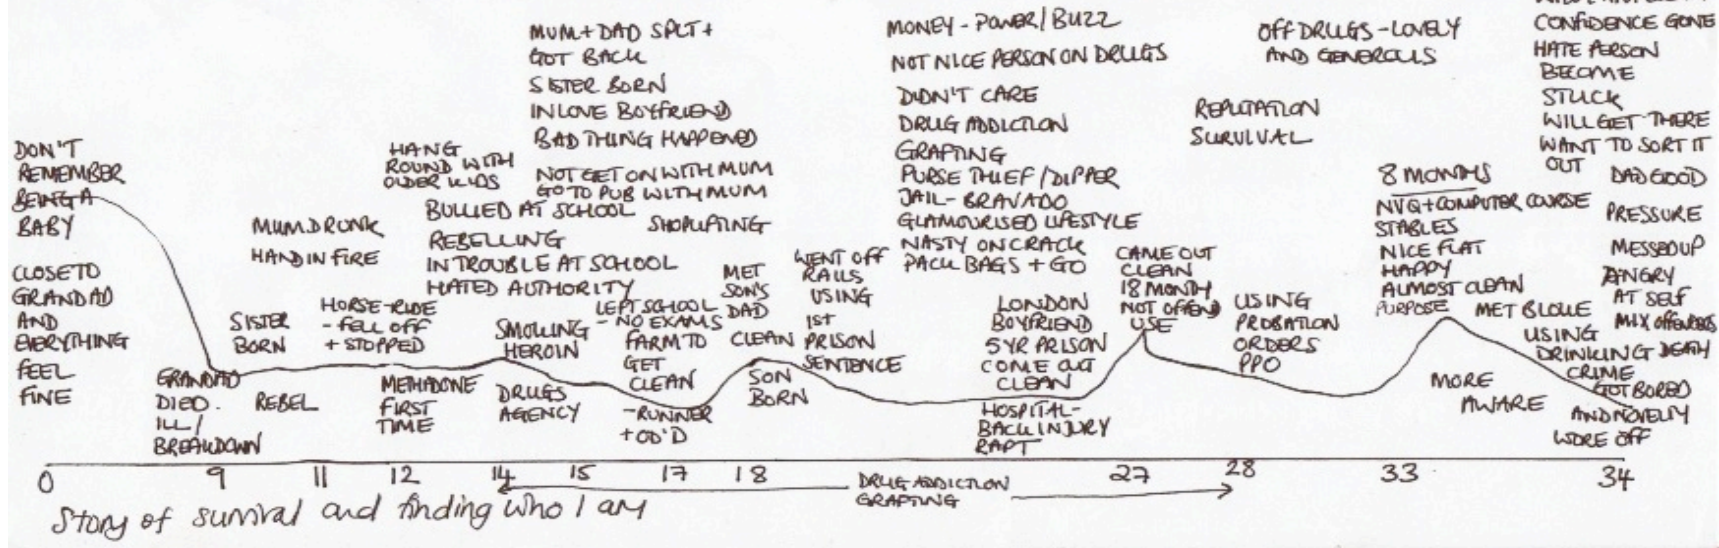 DON'T
REMEMBER
BEING A
BABY
CLOSE TO
GRANDAD
AND
EVERYTHING
FEEL
FINE
GRANDAD
DIED
ILL/
BREAKDOWN
MUM DRUNK
HAND IN FIRE
SISTER
BORN
REBEL
HORSE-RIDE
- FELL OFF
+ STOPPED
METHADONE
FIRST
TIME
HANG
ROUND WITH
OLDER KIDS
BULLIED AT SCHOOL
REBELLING
IN TROUBLE AT SCHOOL
HATED AUTHORITY
SMOKING
HEROIN
DRUGS
AGENCY
MUM + DAD SPLIT +
GOT BACK
SISTER BORN
IN LOVE BOYFRIEND
BAD THING HAPPENED
NOT GET ON WITH MUM
GO TO PUB WITH MUM
SHOPLIFTING
LEFT SCHOOL
- NO EXAMS
FARM TO
GET
CLEAN
- RUNNER
+ OD'D
MET
SON'S
DAD
CLEAN
SON
BORN
WENT OFF
RAILS
USING
1st
PRISON
SENTENCE
MONEY - POWER/BUZZ
NOT NICE PERSON ON DRUGS
DIDN'T CARE
DRUG ADDICTION
GRAFTING
PURSE THIEF/DIPPER
JAIL - BRAVADO
GLAMOURISED LIFESTYLE
NASTY ON CRACK
PACK BAGS + GO
LONDON
BOYFRIEND
5YR PRISON
COME OUT
CLEAN
HOSPITAL -
BACK INJURY
RAPT
CAME OUT
CLEAN
18 MONTH
NOT OFFEND
USE
OFF DRUGS - LOVELY
AND GENEROUS
REPUTATION
SURVIVAL
USING
PROBATION
ORDERS
PPO
8 MONTHS
NVQ + COMPUTER COURSE
STABLES
NICE FLAT
HAPPY
ALMOST CLEAN
PURPOSE
MORE
AWARE
CONFIDENCE GONE
HATE PERSON
BECOME
STUCK
WILL GET THERE
WANT TO SORT IT
OUT
DAD GOOD
PRESSURE
MESSED UP
ANGRY
AT SELF
MIX OFFENDERS
MET BLOKE
USING
DRINKING DEATH
CRIME
GOT BORED
AND NOVELTY
WORE OFF
0 9 11 12 14 15 17 18 27 28 33 34
DRUG ADDICTION
GRAFTING
Story of survival and finding who I am